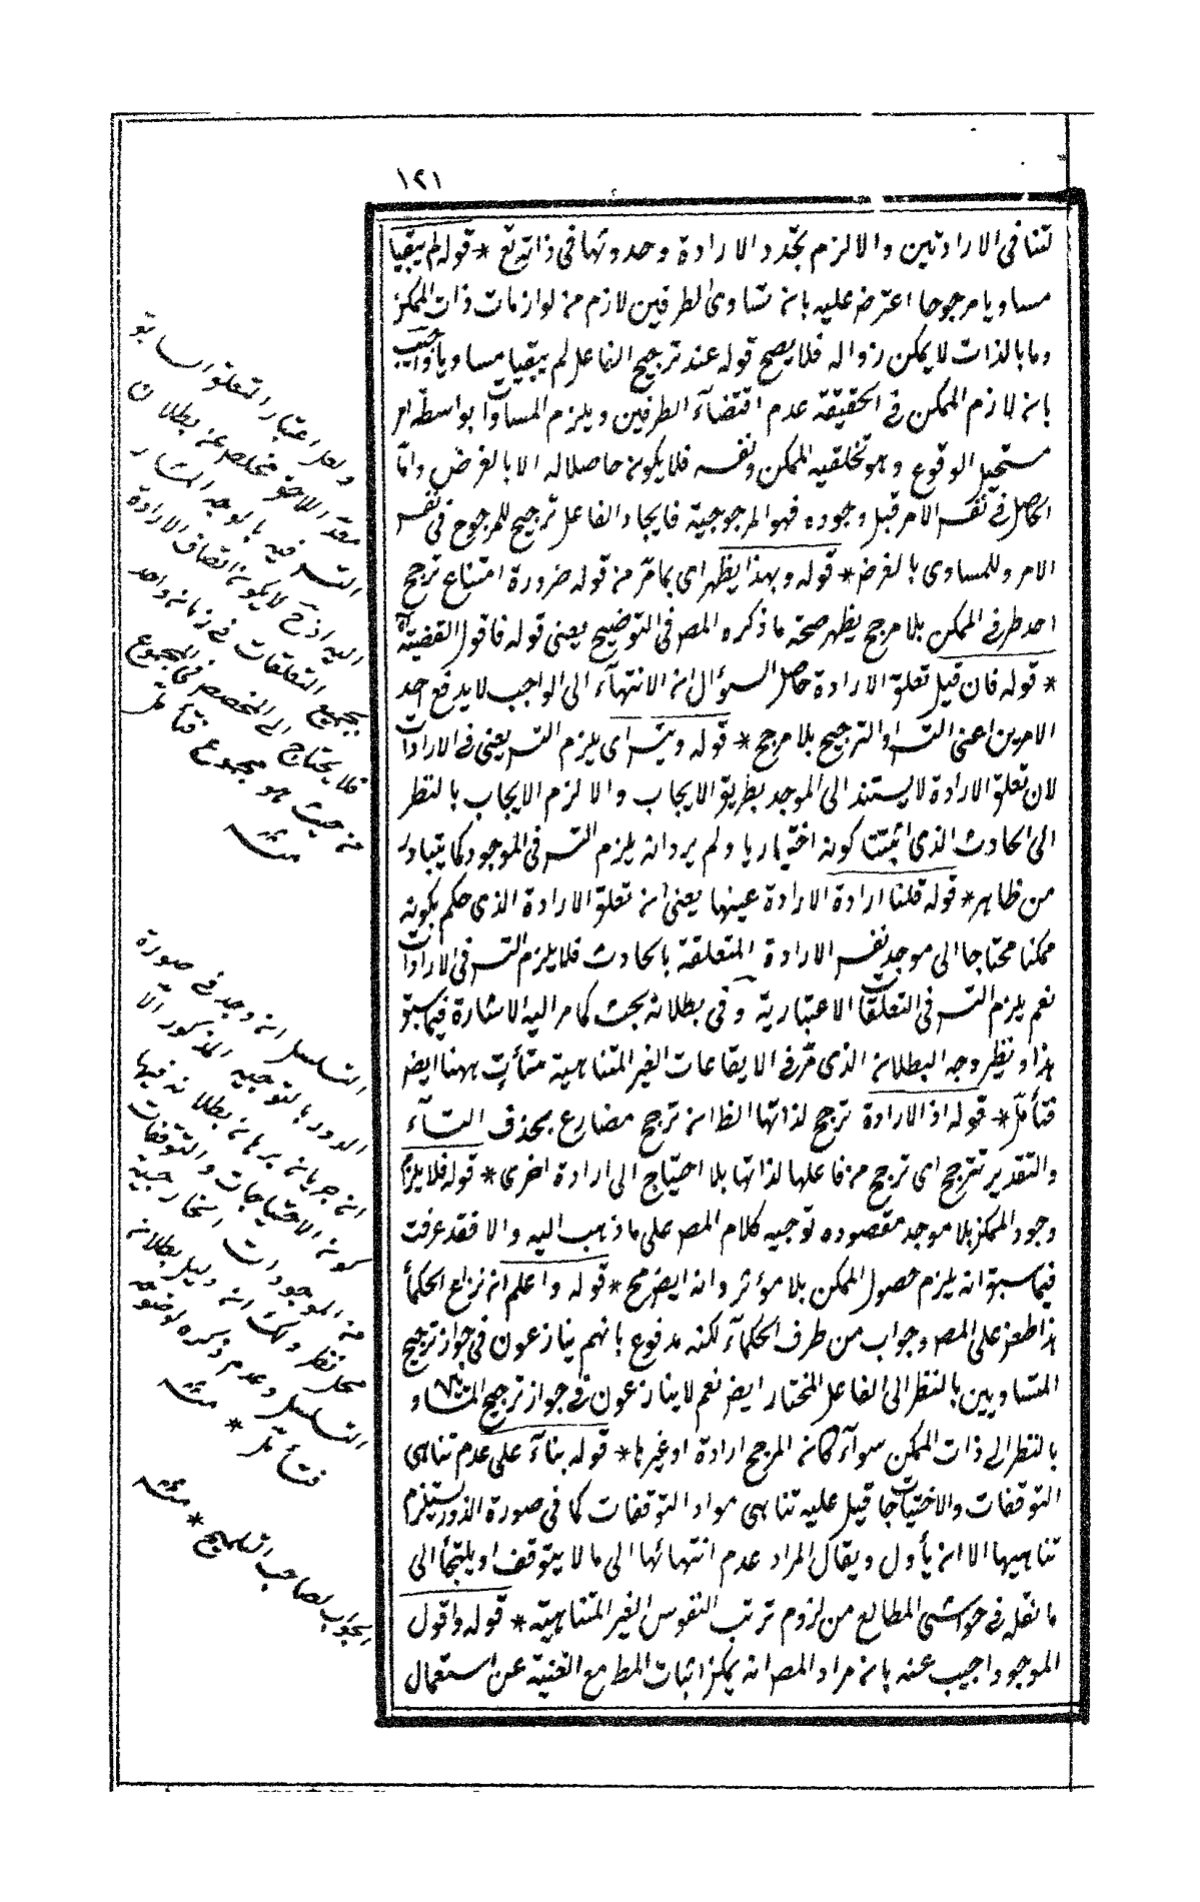 ١٢١
لتنافى الارادتين والا لزم تجدد الارادة وحدوثها فى ذاته تع * قوله لم يبقيا
مساويا مرجوحا اعترض عليه بان تساوى الطرفين لازم من لوازمات ذات الممكن
وما بالذات لا يمكن زواله فلا يصح قوله عند ترجيح الفاعل لم يبقيا مساويا واجيب
بان لازم الممكن فى الحقيقة عدم اقتضاء الطرفين ويلزم المساواة بواسطة امر
مستحيل الوقوع وهو تخلقيه الممكن ونفسه فلا يكون حاصلا له الا بالفرض واما
الحاصل فى نفس الامر قبل وجوده فهو المرجوحية فايجاد الفاعل ترجيح للمرجوح فى نفس
الامر وللمساوى بالفرض * قوله وبهذا يظهر اى بما مر من قوله ضرورة امتناع ترجح
احد طرفى الممكن بلا مرجح يظهر صحة ما ذكره المص فى التوضيح يعنى قوله فاقول القضية اه
* قوله فان قيل تعلق الارادة حاصل السؤال ان الانتهاء الى الواجب لا يدفع احد
الامرين اعنى التس او الترجيح بلا مرجح * قوله ويتس اى يلزم التس يعنى فى الارادات
لان تعلق الارادة لا يستند الى الموجد بطريق الايجاب والا لزم الايجاب بالنظر
الى الحادث الذى اثبتت كونه اختياريا ولم يرد انه يلزم التس فى الموجود كما يتبادر
من ظاهر * قوله قلنا ارادة الارادة عينها يعنى ان تعلق الارادة الذى حكم بكونه
ممكنا محتاجا الى موجد نفس الارادة المتعلقة بالحادث فلا يلزم التس فى الارادات
نعم يلزم التس فى التعلقات الاعتبارية وفى بطلانه بحث كما مر اليه الاشارة فيما سبق
هذا ونظير وجه البطلان الذى مر فى الايقاعات الغير المتناهية متأت ههنا ايض
فتأمل * قوله اذ الارادة ترجح لذاتها الظ ان ترجح مضارع بحذف التاء
والتقدير تترجح اى ترجح من فاعلها لذاتها بلا احتياج الى ارادة اخرى * قوله فلا يلزم
وجود الممكن بلا موجد مقصوده توجيه كلام المص على ما ذهب اليه والا فقد عرفت
فيما سبق انه يلزم حصول الممكن بلا مؤثر وانه ايض مح * قوله واعلم ان نزاع الحكماء
هذا طعن على المص وجواب من طرف الحكماء لكنه مدفوع بانهم ينازعون فى جواز ترجيح
المتساويين بالنظر الى الفاعل المختار ايض نعم لا ينازعون فى جواز ترجيح المتساو
بالنظر الى ذات الممكن سواء كان المرجح ارادة او غيرها * قوله بناء على عدم تناهى
التوقفات والاحتياجات قيل عليه تناهى مواد التوقفات كما فى صورة الدور يستلزم
تناهيها الا ان يأول ويقال المراد عدم انتهائها الى ما لا يتوقف او يلتجأ الى
ما نقله فى حواشى المطالع من لزوم ترتب النفوس الغير المتناهية * قوله واقول
الموجود اجيب عنه بان مراد المص انه يمكن اثبات المط مع الغنية عن استعمال
ولعل اعتبار التعلق السابق
معد اللاحق مخلص عن بطلان
التس فيه بالوجه المشار
اليه اذ ح لا يكون اتصاف الارادة
بجميع التعلقات فى زمان واحد
فلا يحتاج الى المخصص فى المجموع
من حيث هو مجموع فتأمل
منه
التسلسل انه وجد فى صورة
الدور بالتوجيه المذكور الا
ان جريان برهان بطلانه فيها
كون الاحتياجات والتوقفات
من الموجودات الخارجية
محل نظر ولك انه دليل بطلان
التسلسل وعدم ذكره لوضوحه
فتأمل * منه
الجواب لصاحب التلويح * منه